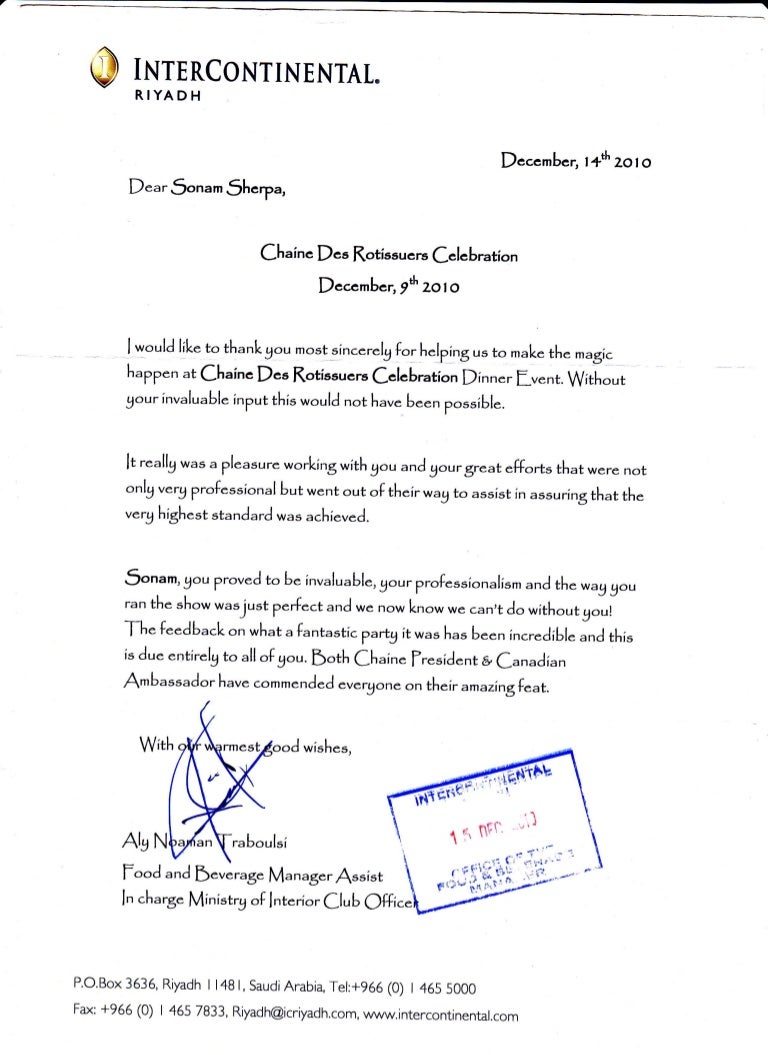 INTERCONTINENTAL.
RIYADH
December, 14th 2010
Dear Sonam Sherpa,
Chaine Des Rotissuers Celebration
December, 9th 2010
I would like to thank you most sincerely for helping us to make the magic
happen at Chaine Des Rotissuers Celebration Dinner Event. Without
your invaluable input this would not have been possible.
It really was a pleasure working with you and your great efforts that were not
only very professional but went out of their way to assist in assuring that the
very highest standard was achieved.
Sonam, you proved to be invaluable, your professionalism and the way you
ran the show was just perfect and we now know we can't do without you!
The feedback on what a fantastic party it was has been incredible and this
is due entirely to all of you. Both Chaine President & Canadian
Ambassador have commended everyone on their amazing feat.
With our warmest good wishes,
INTERCONTINENTAL
15 DEC
OFFICE OF THE
FOOD & BEVERAGE
MANAGER
Aly Noaman Traboulsi
Food and Beverage Manager Assist
In charge Ministry of Interior Club Officer
P.O.Box 3636, Riyadh 11481, Saudi Arabia, Tel:+966 (0) 1 465 5000
Fax: +966 (0) 1 465 7833, Riyadh@icriyadh.com, www.intercontinental.com